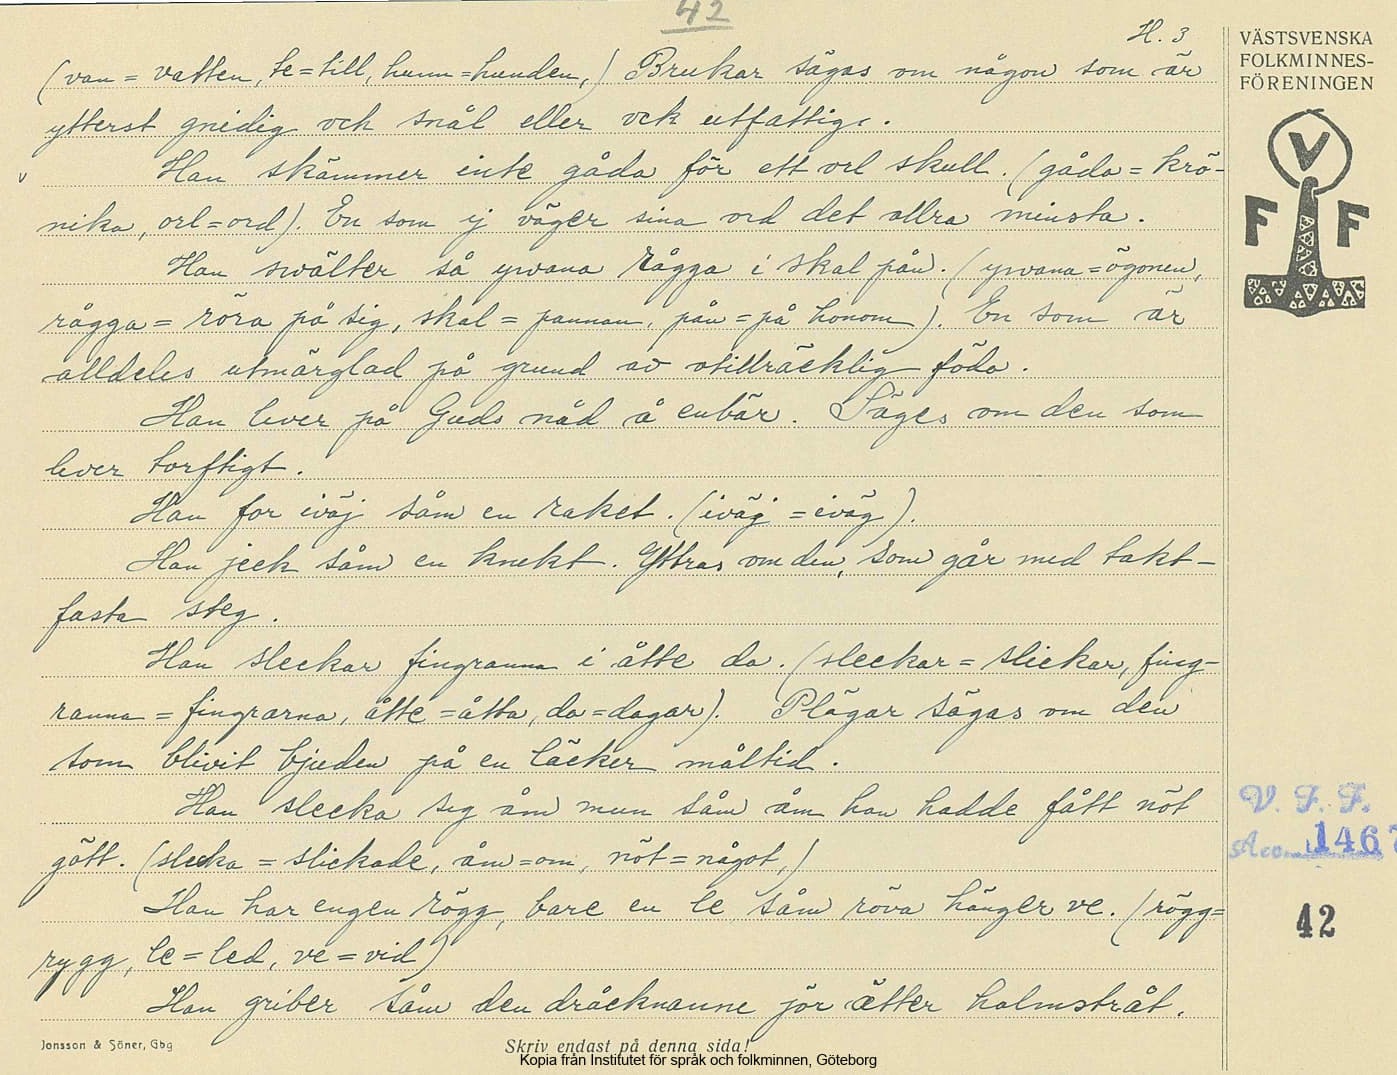 42
H. 3
(van = vatten, te=till, hunn=hunden,) Brukar sägas om någon som är
ytterst gnidig och snål eller ock utfattig.
Han skämmer inte gåda för ett orl skull. (gåda = krö-
nika, orl=ord). En som ej väger sina ord det allra minsta.
Han swälter så ywana rågga i skal pån. (ywana=ögonen,
rågga = röra på sig, skal = pannan, pån =på honom). En som är
alldeles utmärglad på grund av otillräcklig föda.
Han lever på Guds nåd å enbär. Säges om den som
lever torftigt.
Han for iväj såm en raket. (iväj = iväg).
Han jeck såm en knekt. Yttras om den, som går med takt-
fasta steg.
Han sleckar fingranna i åtte da. (sleckar = slickar, fing-
ranna = fingrarna, åtte =åtta, da=dagar). Plägar sägas om den
som blivit bjuden på en läcker måltid.
Han slecka sig åm mun såm åm han hadde fått nöt
gött. (slecka = slickade, åm=om, nöt=något,)
Han har engen rögg, bare en le såm röva hänger ve. (rögg=
rygg, le=led, ve=vid)
Han griber såm den dråcknanne jör ätter halmstråt.
VÄSTSVENSKA
FOLKMINNES-
FÖRENINGEN
V
F F
V. F. F.
Acc. 1467
42
Jonsson & Söner, Gbg
Skriv endast på denna sida!
Kopia från Institutet för språk och folkminnen, Göteborg